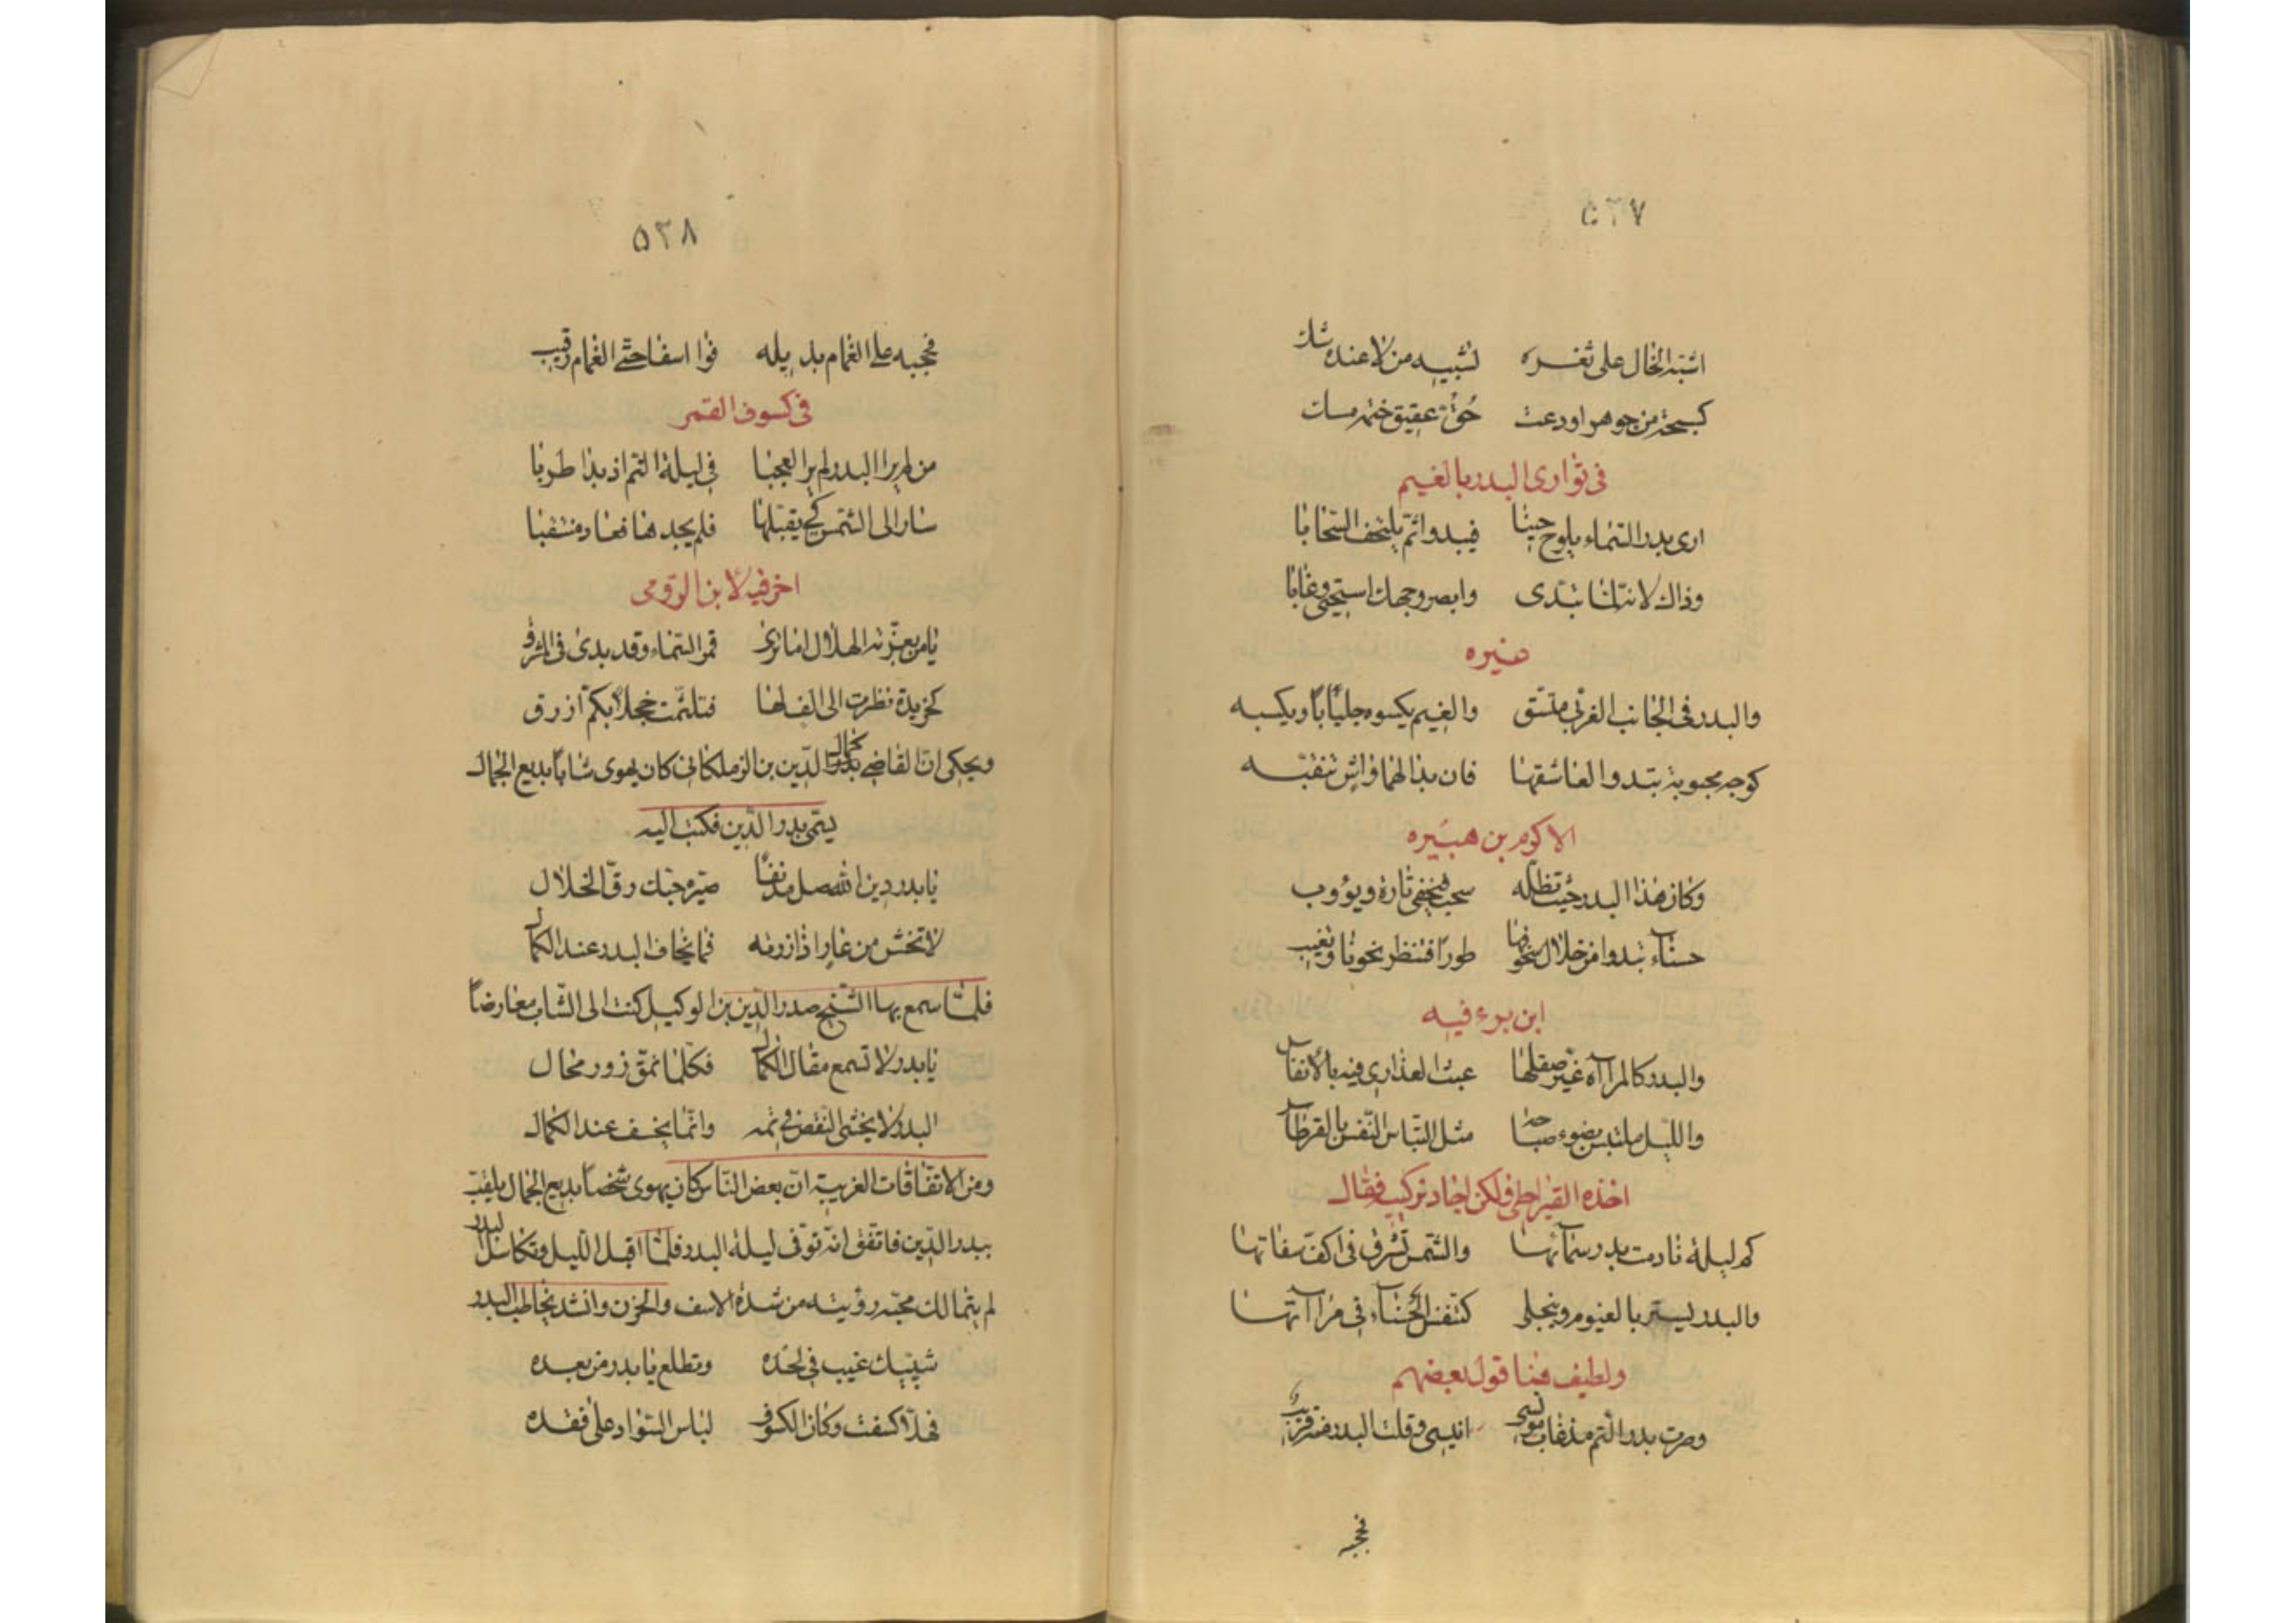 ٥٢٧
اشبّه الخال على ثغره تشبيه من لا عنده شك
كسبحة من جوهر اودعت حُقّ عقيق ختمه مسك
فى توارى البدر بالغيم
ارى بدر السّماء يلوح حينا فيبدو اثمّ يلتحف السّحابا
وذاك لانّه لمّا تبدّى وابصر وجهك استحيى وغابا
غيره
والبدر فى الجانب الغربى متّسق والغيم يكسوه جلبابًا ويكسبه
كوجه محبوبة تبدوا لعاشقها فان بدا لهما واشٍ تنقّبه
الاكرم بن هبيره
وكان هذا البدر حيث تظلّه سحب فيخفى تارة ويؤوب
حسناء تبدوا من خلال سجوفها طورًا فتنظر نحونا وتغيب
ابن برء فيه
والبدر كالمرآاة غيّر صقلها عبث العذارى فيه بالأنفاس
والليل ملتبس بضوء صباحه مثل التباس النّقس بالقرطاس
اخذه القيراطى ولكن اجاد تركيبه فقال
كم ليلة نادمت بدر سمآئها والشّمس تشرق فى اكفّ سقاتها
والبدر يستر بالغيوم وينجلى كتنفّس الحسناء فى مراآتها
ولطيف هنا قول بعضهم
وصرت بدر التّم مذ غاب مونسى انيسى وقلت البدر منه قريب
فحجبه
٥٢٨
فحجبه على الغمام بذيله فوا اسفا حتّى الغمام رقيب
فى كسوف القمر
من لم يرا البدر لم يرا العجبا فى ليلة التم اذ بدا طربا
سار الى الشّمس كى يقبّلها فلم يجدها فعاد منتقبا
اخر فيه لابن الرّومى
يا من يعزّ به الهلال اما ترى قمر السّماء وقد بدى فى المشرق
كخريدة نظرت الى الف لها فتلثّمت خجلًا بكمّ ازرق
ويحكى انّ القاضى كمال الدّين بن الزملكانى كان يهوى شابًا بديع الجمال
يسمّى بدر الدّين فكتب اليه
يا بدر دين الله صل مدنفًا صيّره حبّك رقّ الخلال
لا تخش من عار اذا زرته فما يخاف البدر عند الكمال
فلمّا سمع بها الشّيخ صدر الدّين بن الوكيل كتب الى الشّاب معارضًا
يا بدر لا تسمع مقال الكمال فكلّما نمّق زور محال
البدر لا يخشى النّقص فى تمّه وانّما يخسف عند الكمال
ومن الاتفاقات الغريبة انّ بعض النّاس كان يهوى شخصًا بديع الجمال يلقّب
ببدر الدّين فاتّفق انّه توفى ليلة البدر فلمّا اقبل اللّيل وتكامل البدر
لم يتمالك محبّه رؤيته من شدة الاسف والحزن وانشد يخاطب البدر
شقيقك غيب فى لحده وتطلع يا بدر من بعده
فهلّا كسفت وكان الكسوف لباس السّواد على فقده